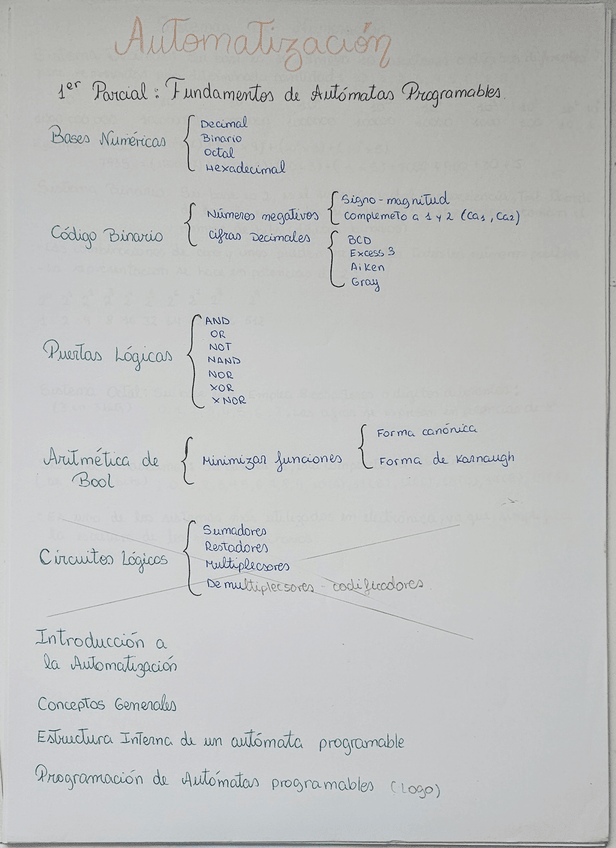 Automatización
1er Parcial: Fundamentos de Autómatas Programables.
Bases Numéricas
Decimal
Binario
Octal
Hexadecimal
Código Binario
Números negativos
Signo-magnitud
Complemeto a 1 y 2 (Ca1, Ca2)
Cifras Decimales
BCD
Excess 3
Aiken
Gray
Puertas Lógicas
AND
OR
NOT
NAND
NOR
XOR
XNOR
Aritmética de
Bool
Minimizar funciones
Forma canónica
Forma de Karnaugh
Circuitos Lógicos
Sumadores
Restadores
Multiplecsores
Demultiplecsores - codificadores
Introducción a
la Automatización
Conceptos Generales
Estructura Interna de un autómata programable
Programación de Autómatas programables (Logo)